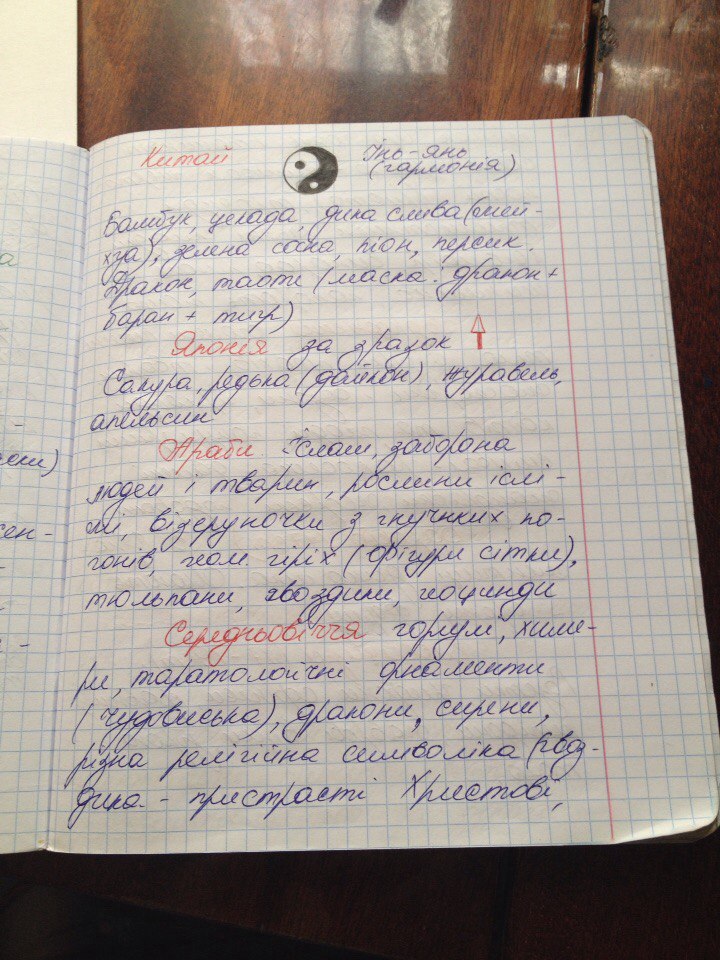 Китай
Інь-янь
(гармонія)
Бамбук, цекада, дика слива (мей-
хза), зелена сосна, піон, персик.
Дракон, таоте (маска: дракон +
баран + тигр)
Японія за зразок
Сакура, редька (дайкон), журавель,
апельсин
Араби Іслам, заборона
людей і тварин, рослини іслі-
мі, візеруночки з гнучких по-
гонів, геом. гіріх (фігури сітки),
тюльпани, гвоздики, гіоцинди
Середньовіччя горгулі, химе-
ри, таратологічні орнаменти
(чудовиська), дракони, сирени,
різна релігійна символіка (гвоз-
дика - пристрасті Христові,
а
еки)
сен-
-